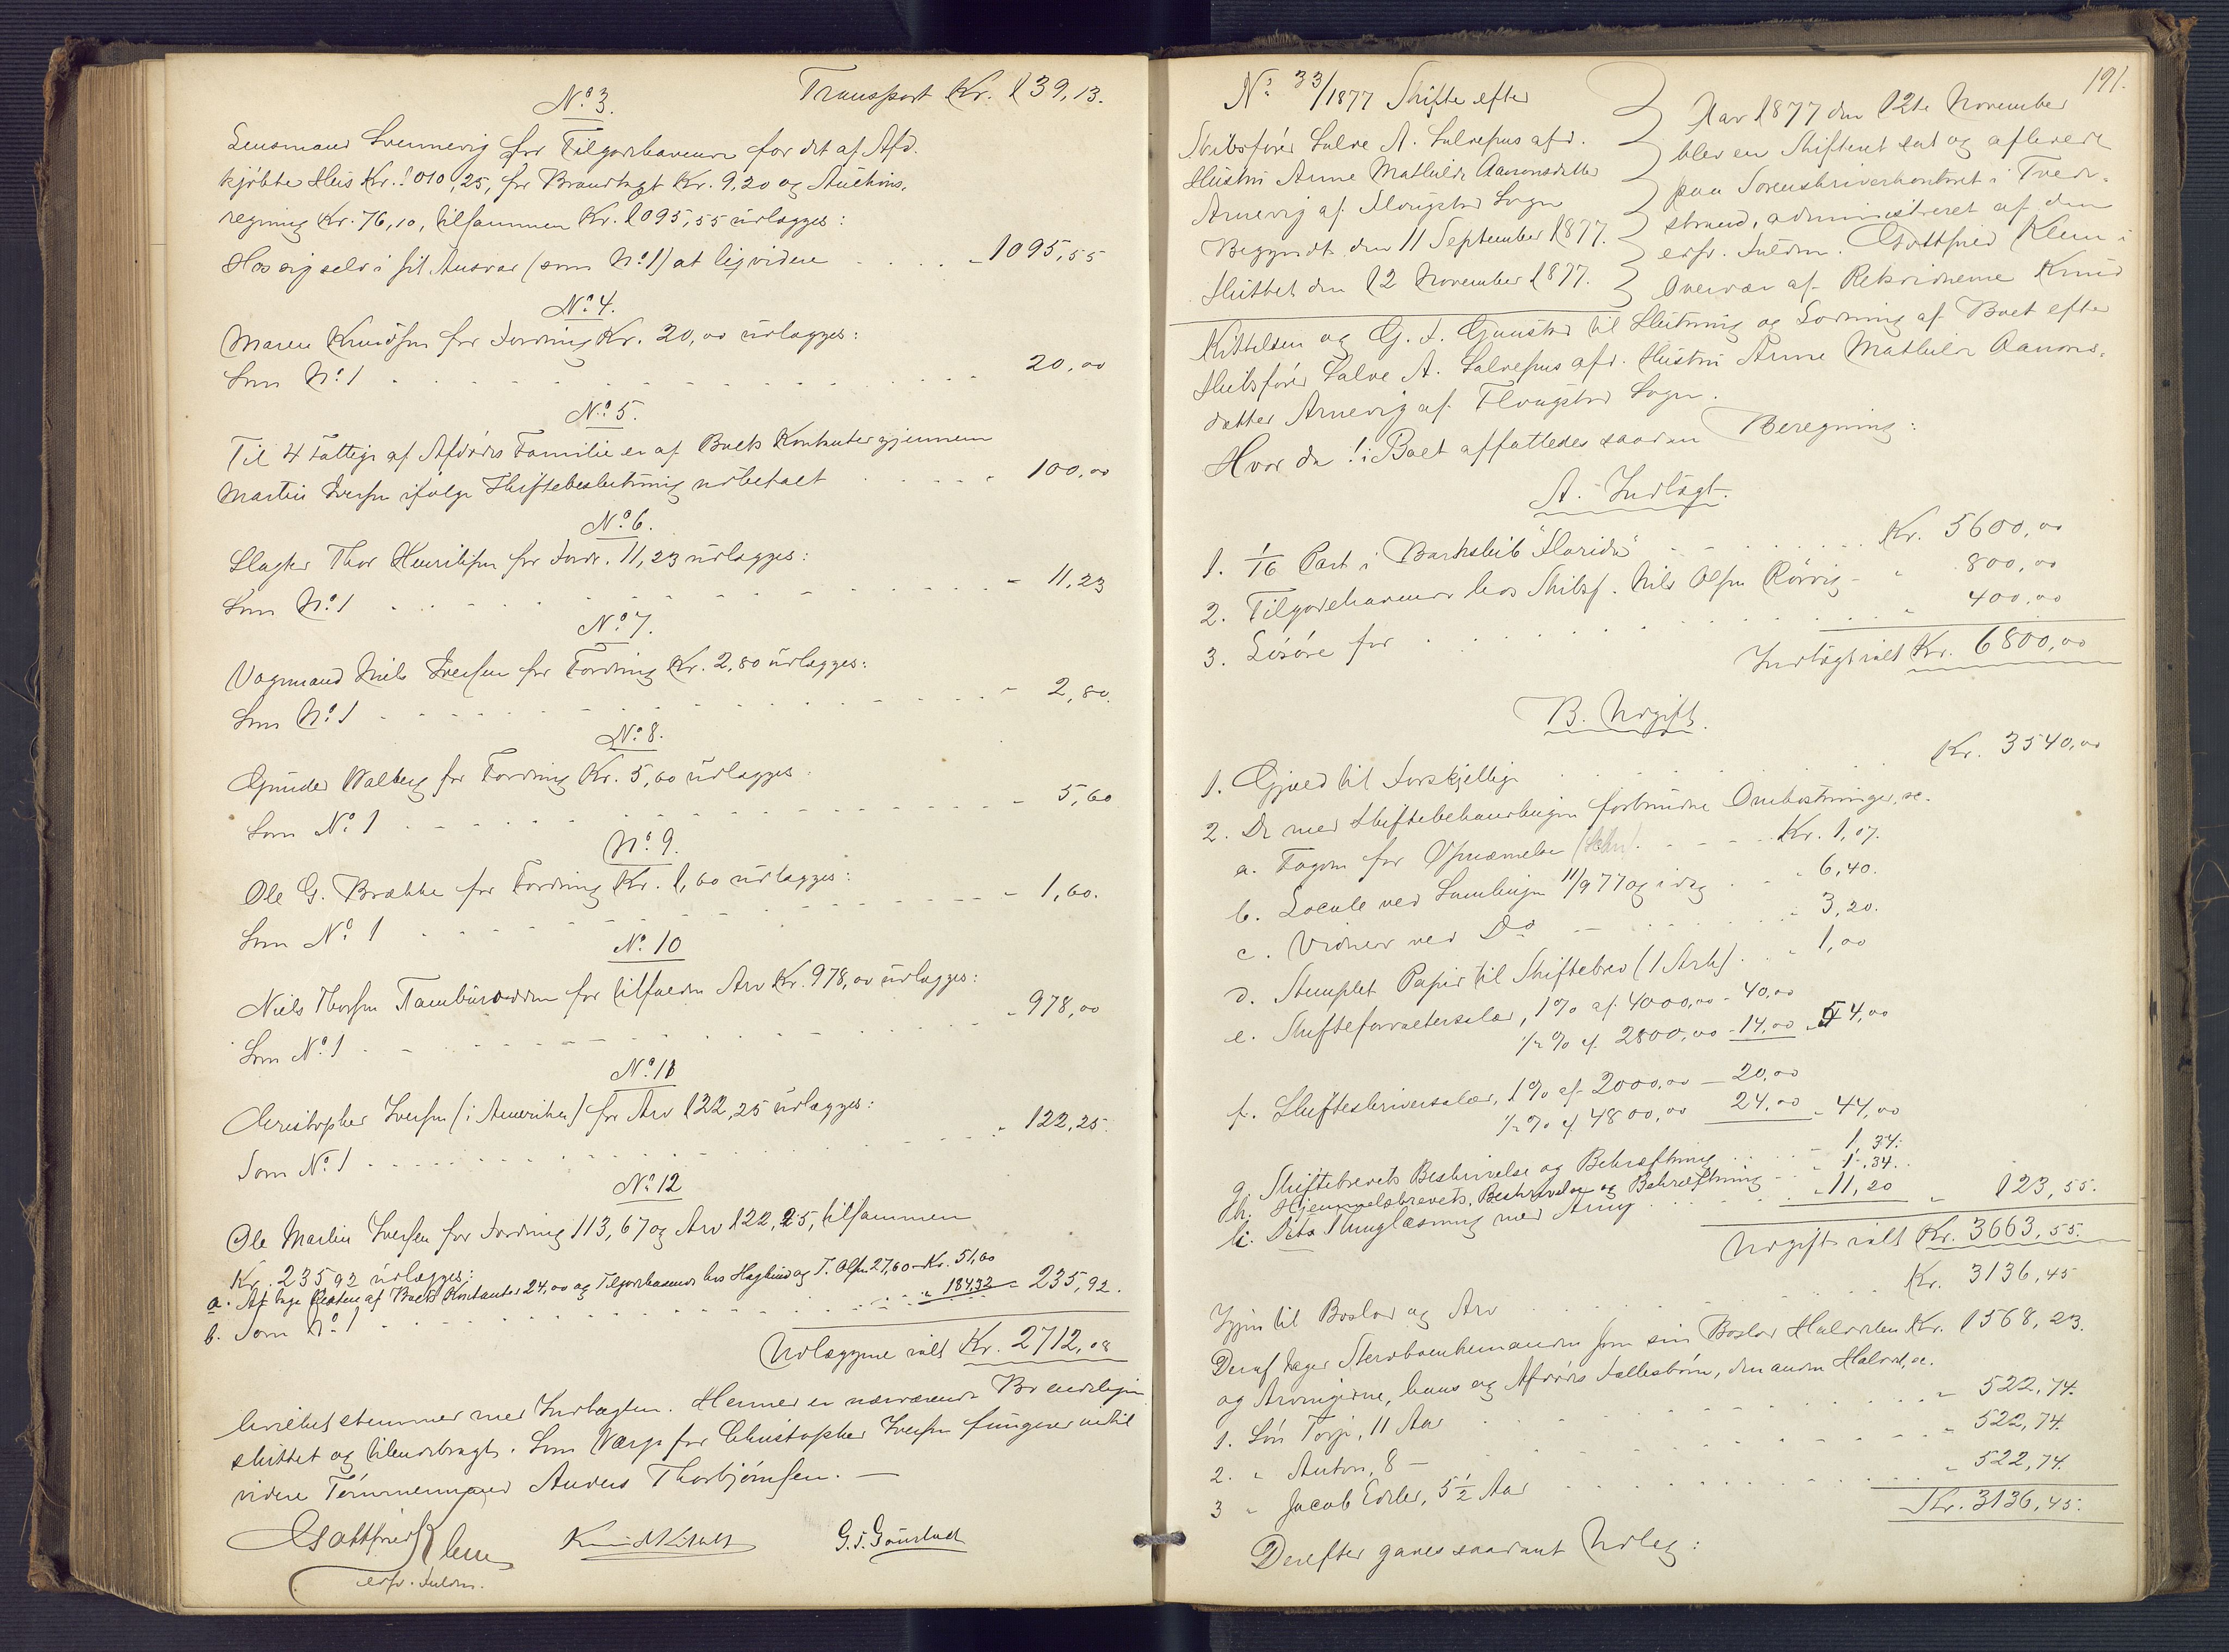 Transport Kr. 139,13.
No 3.
Lensmand Svennevig for Tilgodehavende for det af Afd.
kjøbte Huus Kr. 1010,25, for Brandtaxt Kr. 9,20 og Auctions-
regning Kr. 76,10, tilsammen Kr. 1095,55 udlægges:
Hos sig selv i sit Ansvar (som No 1) at liqvidere - 1095,55
No 4.
Maren Knudsen for Fordring Kr. 20,00 udlægges:
Som No 1 20,00
No 5.
Til 4 Fattige af Afdødes Familie er af Boets Kontanter gjennem
Martin Iversen ifølge Skiftebeslutning udbetalt - 100,00
No 6.
Slagter Thor Henriksen for Fordr. 11,23 udlægges:
Som No 1 - 11,23
No 7.
Vognmand Niels Iversen for Fordring Kr. 2,80 udlægges:
Som No 1 - 2,80.
No 8.
Gunder Walberg for Fordring Kr. 5,60 udlægges:
Som No 1 - 5,60
No 9.
Ole G. Brække for Fordring Kr. 1,60 udlægges:
Som No 1 - 1,60.
No 10
Niels Thorsen for tilfalden Arv Kr. 978,00 udlægges:
Som No 1 - 978,00
No 11
Christopher Iversen (i Amerika) for Arv 122,25 udlægges:
Som No 1 - 122,25.
No 12
Ole Martin Iversen for Fordring 113,67 og Arv 122,25, tilsammen
Kr. 235,92 udlægges:
a. At tage Resten af Boets Kontanter 24,00 og Tilgodehavende hos og T. Olsen 27,60 - Kr. 51,60
b. Som No 1 " 184,32 - 235,92.
Udlæggene ialt Kr. 2712,08
hvilket stemmer med Indtægten. Hermed er nærværende Bo endeligen
sluttet og tilendebragt. Som Værge for Christopher Iversen fungerer indtil
videre Tømmermand Anders Thorbjørnsen. —
Gottfried Klem
edsv. Fuldm.
G. F. Gounstad
191.
No 33/1877 Skifte efter
Skibsfører Salve A. Salvesens afd.
Hustru Anne Mathilde Aanonsdatter
Arnevig af Flougstad Sogn
Begyndt den 11 September 1877.
Sluttet den 12 November 1877.
Aar 1877 den 12te November
blev en Skifteret sat og afholdt
paa Sorenskriverkontoret i Tvede-
strand, administreret af den
edsv. Fuldm. Gottfried Klem i
Overvær af Retsvidnerne Knud
Kittelsen og G. F. Gounstad til Slutning og Lodning af Boet efter
Skibsfører Salve A. Salvesens afd. Hustru Anne Mathilde Aanons-
datter Arnevig af Flougstad Sogn.
Hvor da i Boet affattedes saadan Beregning:
A. Indtægt.
1. 1/16 Part i Barkskib "Florida" Kr. 5600,00
2. Tilgodehavende hos Skibsf. Nils Olsen Rørvig - " 800,00
3. Løsøre for " 400,00
Indtægt ialt Kr. 6800,00
B. Udgift.
1. Gjæld til Forskjellige Kr. 3540,00
2. De med Skiftebehandlingen forbundne Omkostninger, sc.
a. Fogden for Opnævnelse Kr. 1,07.
b. Locale ved Samlingen 11/9 77 og idag " 6,40.
c. Vidner ved Do " 3,20.
d. Stemplet Papir til Skiftebrev (1 Ark) " 1,00
e. Skifteforvaltersalær, 1% af 4000,00 - 40,00
1/2 % af 2800,00 - 14,00 " 54,00
f. Skifteskriversalær, 1% af 2000,00 — 20,00
1/2 % af 4800,00 24,00 " 44,00
g. Skiftebrevets Beskrivelse og Bekræftning " 1,34.
h. Hjemmelsbrevets Beskrivelse og Bekræftning " 1,34.
i. Dets Thinglæsning med " 11,20 " 123,55.
Udgift ialt Kr. 3663,55.
Igjen til Boslod og Arv Kr. 3136,45
Deraf tager Stervboenkemanden som sin Boslod Halvdelen Kr. 1568,23.
og Arvingerne, hans og Afdødes Fællesbørn, den anden Halvdel, sc.
1. Søn Torje, 11 Aar " 522,74.
2. " Anton, 8 — " 522,74.
3 " Jacob Edvler, 5 1/2 Aar " 522,74.
Kr. 3136,45.
Derefter gaves saadant Udlæg: